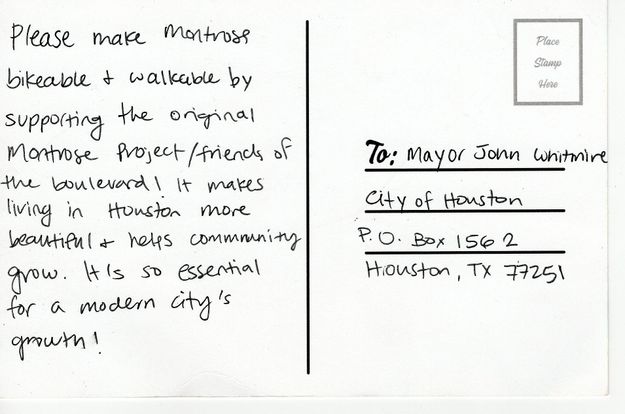 Please make Montrose
bikeable & walkable by
supporting the original
Montrose Project/friends of
the boulevard! It makes
living in Houston more
beautiful & helps community
grow. It is so essential
for a modern city's
growth!
Place
Stamp
Here
To: Mayor John Whitmire
City of Houston
P.O. Box 1562
Houston, TX 77251